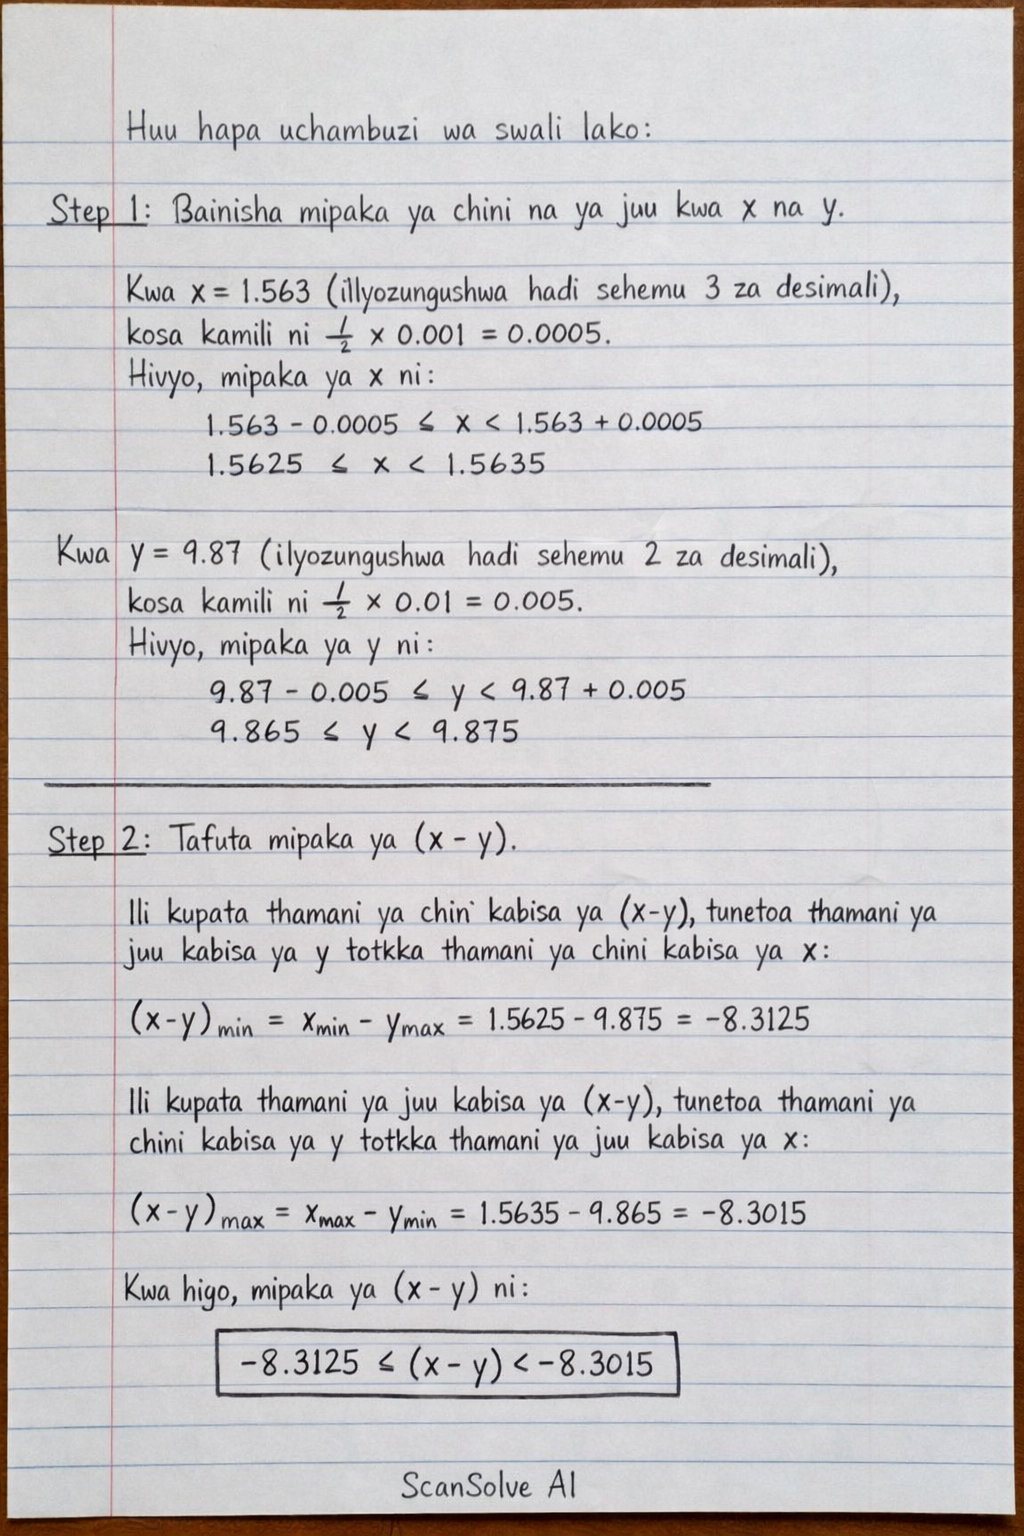 Huu hapa uchambuzi wa swali lako:
Step 1: Bainisha mipaka ya chini na ya juu kwa x na y.
Kwa x = 1.563 (illyozungushwa hadi sehemu 3 za desimali),
kosa kamili ni 1/2 × 0.001 = 0.0005.
Hivyo, mipaka ya x ni:
1.563 - 0.0005 ≤ x < 1.563 + 0.0005
1.5625 ≤ x < 1.5635
Kwa y = 9.87 (ilyozungushwa hadi sehemu 2 za desimali),
kosa kamili ni 1/2 × 0.01 = 0.005.
Hivyo, mipaka ya y ni:
9.87 - 0.005 ≤ y < 9.87 + 0.005
9.865 ≤ y < 9.875
Step 2: Tafuta mipaka ya (x - y).
Ili kupata thamani ya chin' kabisa ya (x-y), tunetoa thamani ya
juu kabisa ya y totkka thamani ya chini kabisa ya x:
(x-y)min = xmin - ymax = 1.5625 - 9.875 = -8.3125
Ili kupata thamani ya juu kabisa ya (x-y), tunetoa thamani ya
chini kabisa ya y totkka thamani ya juu kabisa ya x:
(x-y)max = xmax - ymin = 1.5635 - 9.865 = -8.3015
Kwa higo, mipaka ya (x - y) ni:
-8.3125 ≤ (x - y) < -8.3015
ScanSolve AI